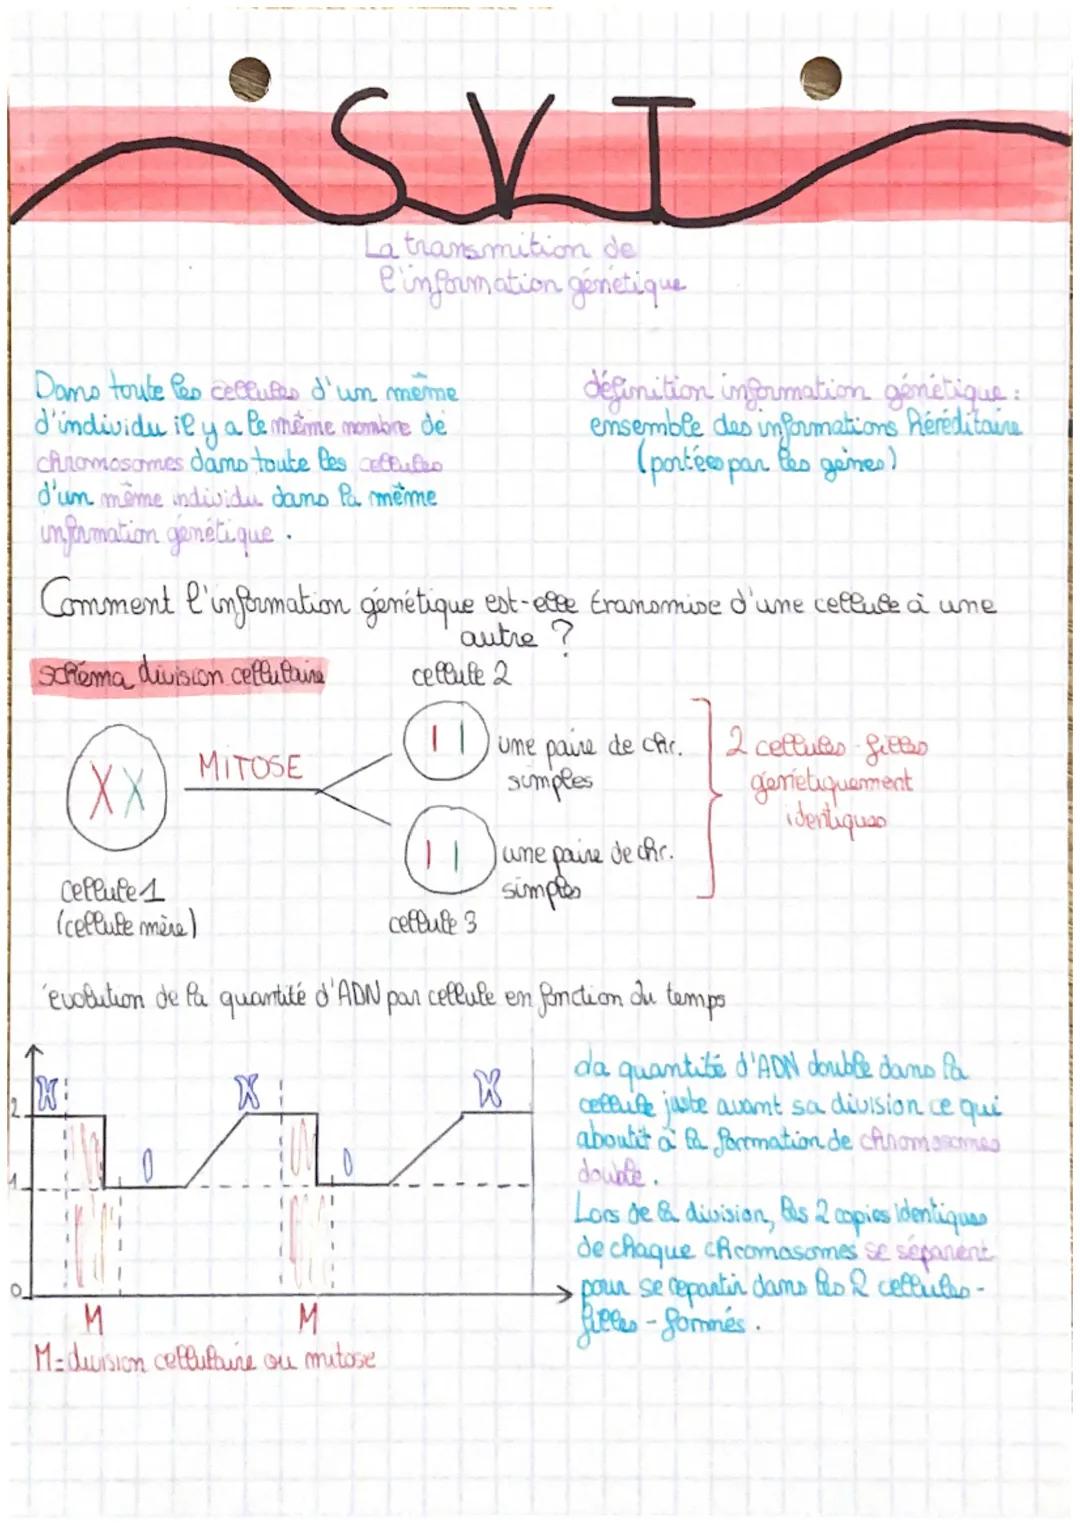 SVT
La transmition de
l'information génétique
Dans toute les cellules d'un même
d'individu il y a le même nombre de
chromosomes dans toute les cellules
d'un même individu dans la même
information génétique.
définition information génétique :
ensemble des informations héréditaire
(portées par les gènes)
Comment l'information génétique est-elle transmise d'une cellule à une
autre ?
schéma division cellulaire
cellule 2
MITOSE
une paire de chr.
simples
2 cellules-filles
genetiquement
identiques
une paire de chr.
simples
cellule 1
(cellule mère)
cellule 3
évolution de la quantité d'ADN par cellule en fonction du temps
2
1
0
M
M
M=division cellulaire ou mitose
La quantité d'ADN double dans la
cellule juste avant sa division ce qui
aboutit à la formation de chromosomes
double.
Lors de la division, les 2 copies identiques
de chaque chromosomes se séparent
pour se repartir dans les 2 cellules-
filles-formés.